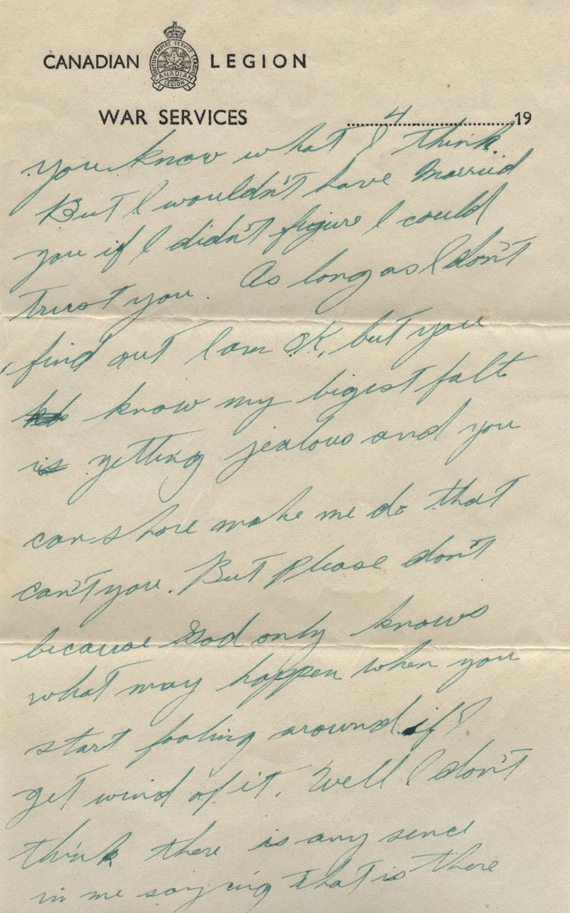 CANADIAN LEGION
BRITISH EMPIRE SERVICE LEAGUE
CANADIAN LEGION
WAR SERVICES
4 19
you know what I think
But I wouldn't have Married
you if I didn't figure I could
trust you. As long as I don't
find out I am OK, but you
know my bigest falt
is getting jealous and you
can shore make me do that
can't you. But Please don't
because God only knows
what may happen when you
start fooling around if I
get wind of it. Well I don't
think there is any sence
in me saying that is there